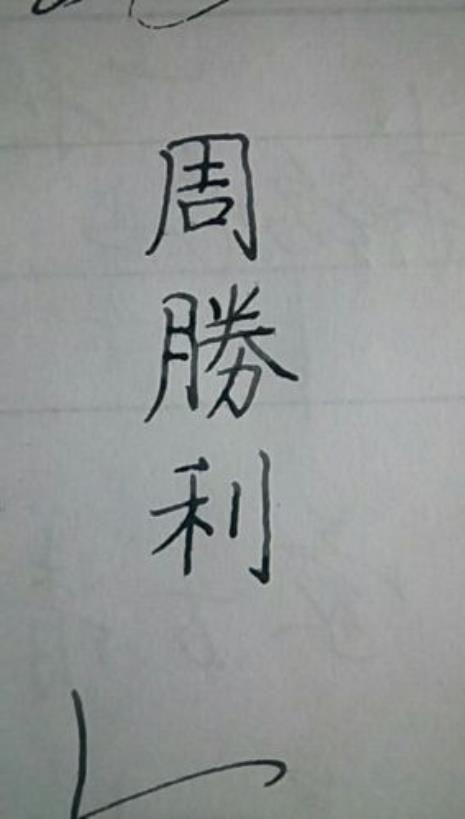 周勝利